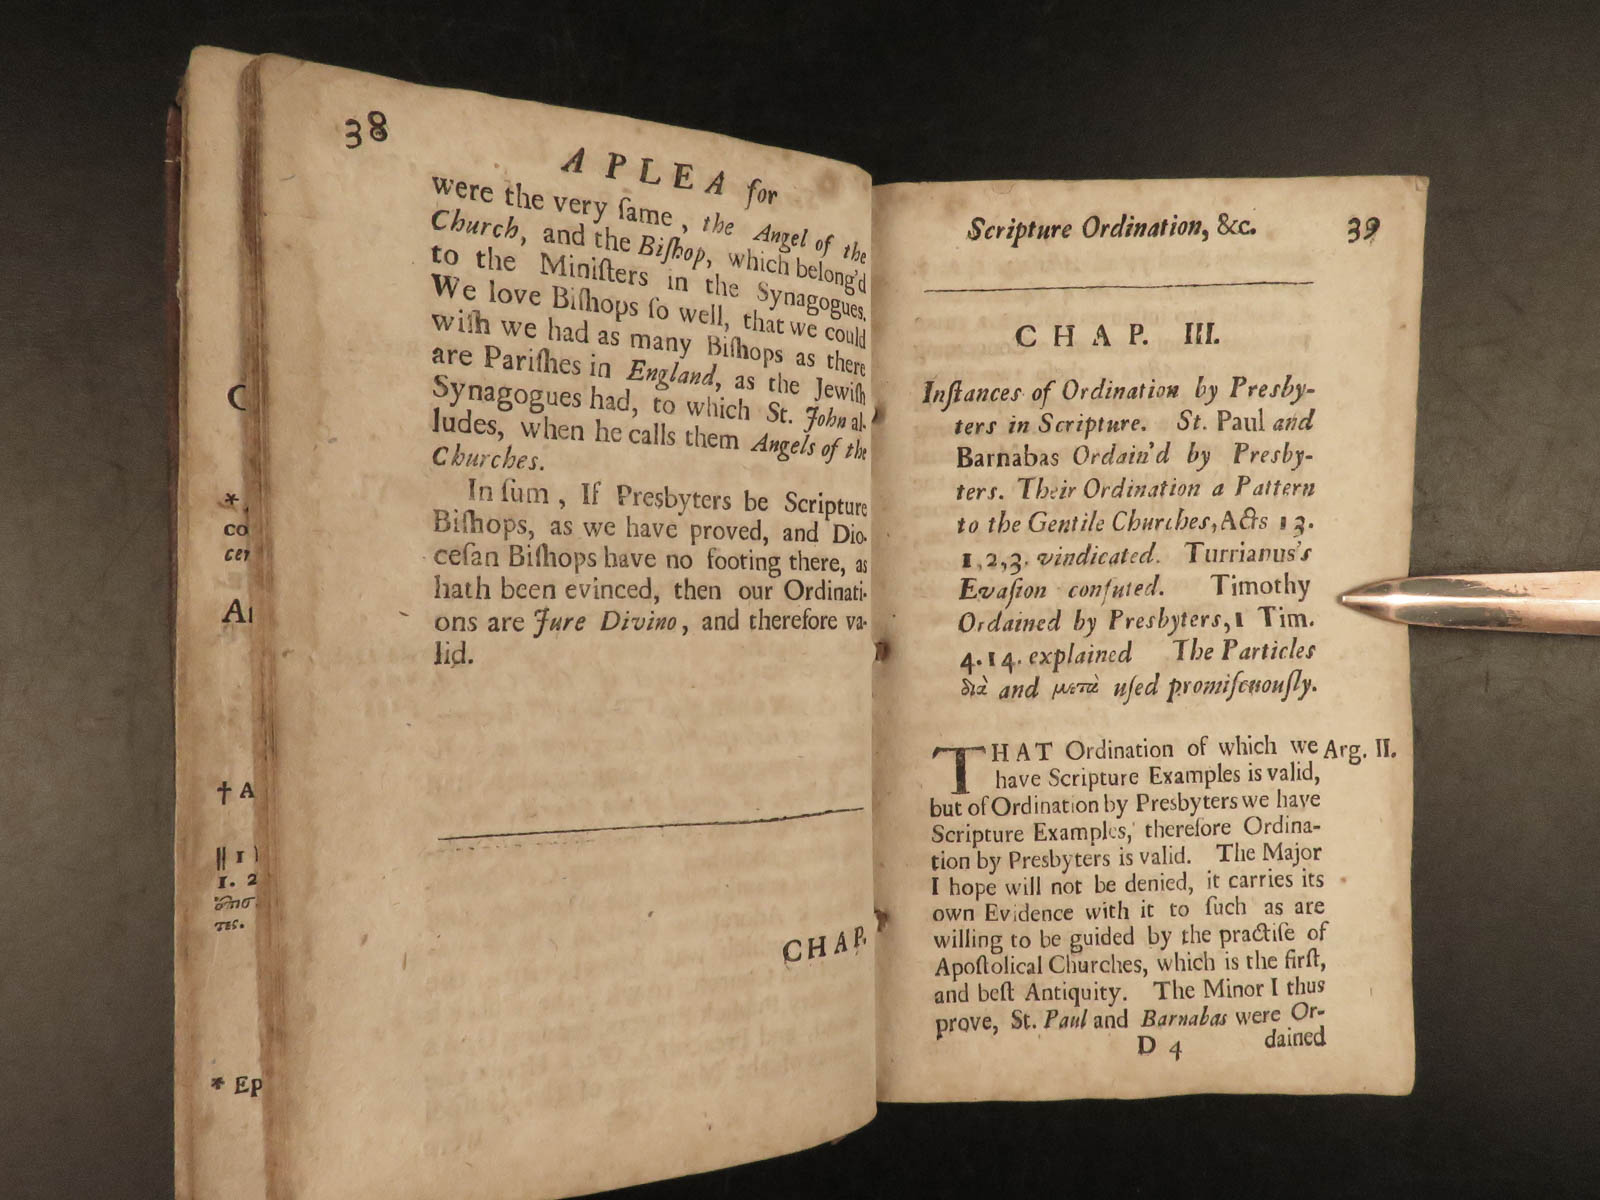 C
*
co
cer
† A
|| 1
1. 2
τες.
* Ep
38
A PLEA for
were the very ſame, the Angel of the
Church, and the Biſhop, which belong'd
to the Miniſters in the Synagogues.
We love Biſhops ſo well, that we could
wiſh we had as many Biſhops as there
are Pariſhes in England, as the Jewiſh
Synagogues had, to which St. John al-
ludes, when he calls them Angels of the
Churches.
In ſum, If Presbyters be Scripture
Biſhops, as we have proved, and Dio-
ceſan Biſhops have no footing there, as
hath been evinced, then our Ordinati-
ons are Jure Divino, and therefore va-
lid.
CHAP.
Scripture Ordination, &c. 39
CHAP. III.
Inſtances of Ordination by Presby-
ters in Scripture. St. Paul and
Barnabas Ordain'd by Presby-
ters. Their Ordination a Pattern
to the Gentile Churches, Acts 13.
1,2,3. vindicated. Turrianus's
Evaſion confuted. Timothy
Ordained by Presbyters, 1 Tim.
4.14. explained The Particles
διὰ and μετὰ uſed promiſcuouſly.
THAT Ordination of which we Arg. II.
have Scripture Examples is valid,
but of Ordination by Presbyters we have
Scripture Examples, therefore Ordina-
tion by Presbyters is valid. The Major
I hope will not be denied, it carries its
own Evidence with it to ſuch as are
willing to be guided by the practiſe of
Apoſtolical Churches, which is the firſt,
and beſt Antiquity. The Minor I thus
prove, St. Paul and Barnabas were Or-
D 4 dained